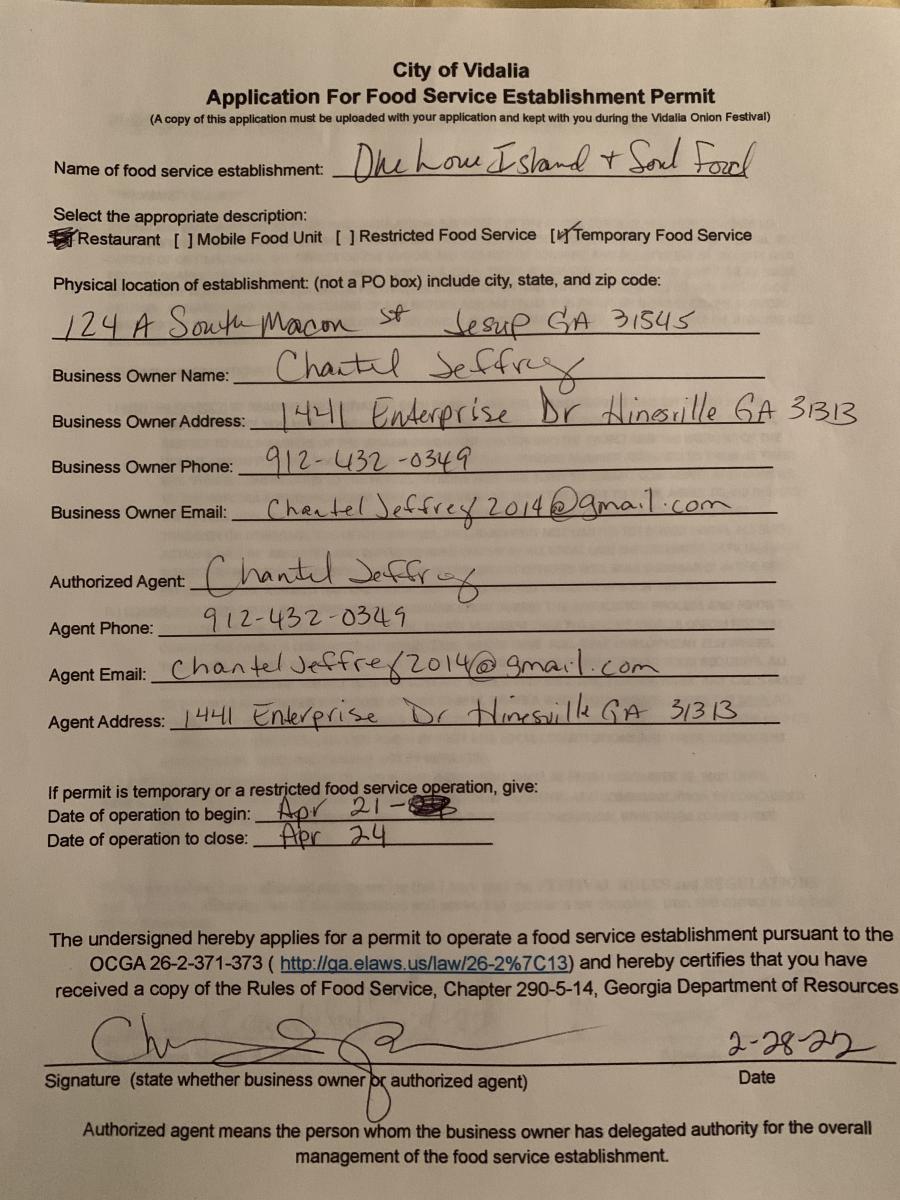 City of Vidalia
Application For Food Service Establishment Permit
(A copy of this application must be uploaded with your application and kept with you during the Vidalia Onion Festival)
Name of food service establishment: One Love Island + Soul Food
Select the appropriate description:
Restaurant [ ] Mobile Food Unit [ ] Restricted Food Service [✓] Temporary Food Service
Physical location of establishment: (not a PO box) include city, state, and zip code:
124 A South Macon st Jesup GA 31545
Business Owner Name: Chantel Jeffrey
Business Owner Address: 1441 Enterprise Dr Hinesville GA 31313
Business Owner Phone: 912-432-0349
Business Owner Email: ChantelJeffrey2014@gmail.com
Authorized Agent: Chantel Jeffrey
Agent Phone: 912-432-0349
Agent Email: ChantelJeffrey2014@gmail.com
Agent Address: 1441 Enterprise Dr Hinesville GA 31313
If permit is temporary or a restricted food service operation, give:
Date of operation to begin: Apr 21-
Date of operation to close: Apr 24
The undersigned hereby applies for a permit to operate a food service establishment pursuant to the
OCGA 26-2-371-373 ( http://ga.elaws.us/law/26-2%7C13) and hereby certifies that you have
received a copy of the Rules of Food Service, Chapter 290-5-14, Georgia Department of Resources
2-28-22
Signature (state whether business owner or authorized agent) Date
Authorized agent means the person whom the business owner has delegated authority for the overall
management of the food service establishment.